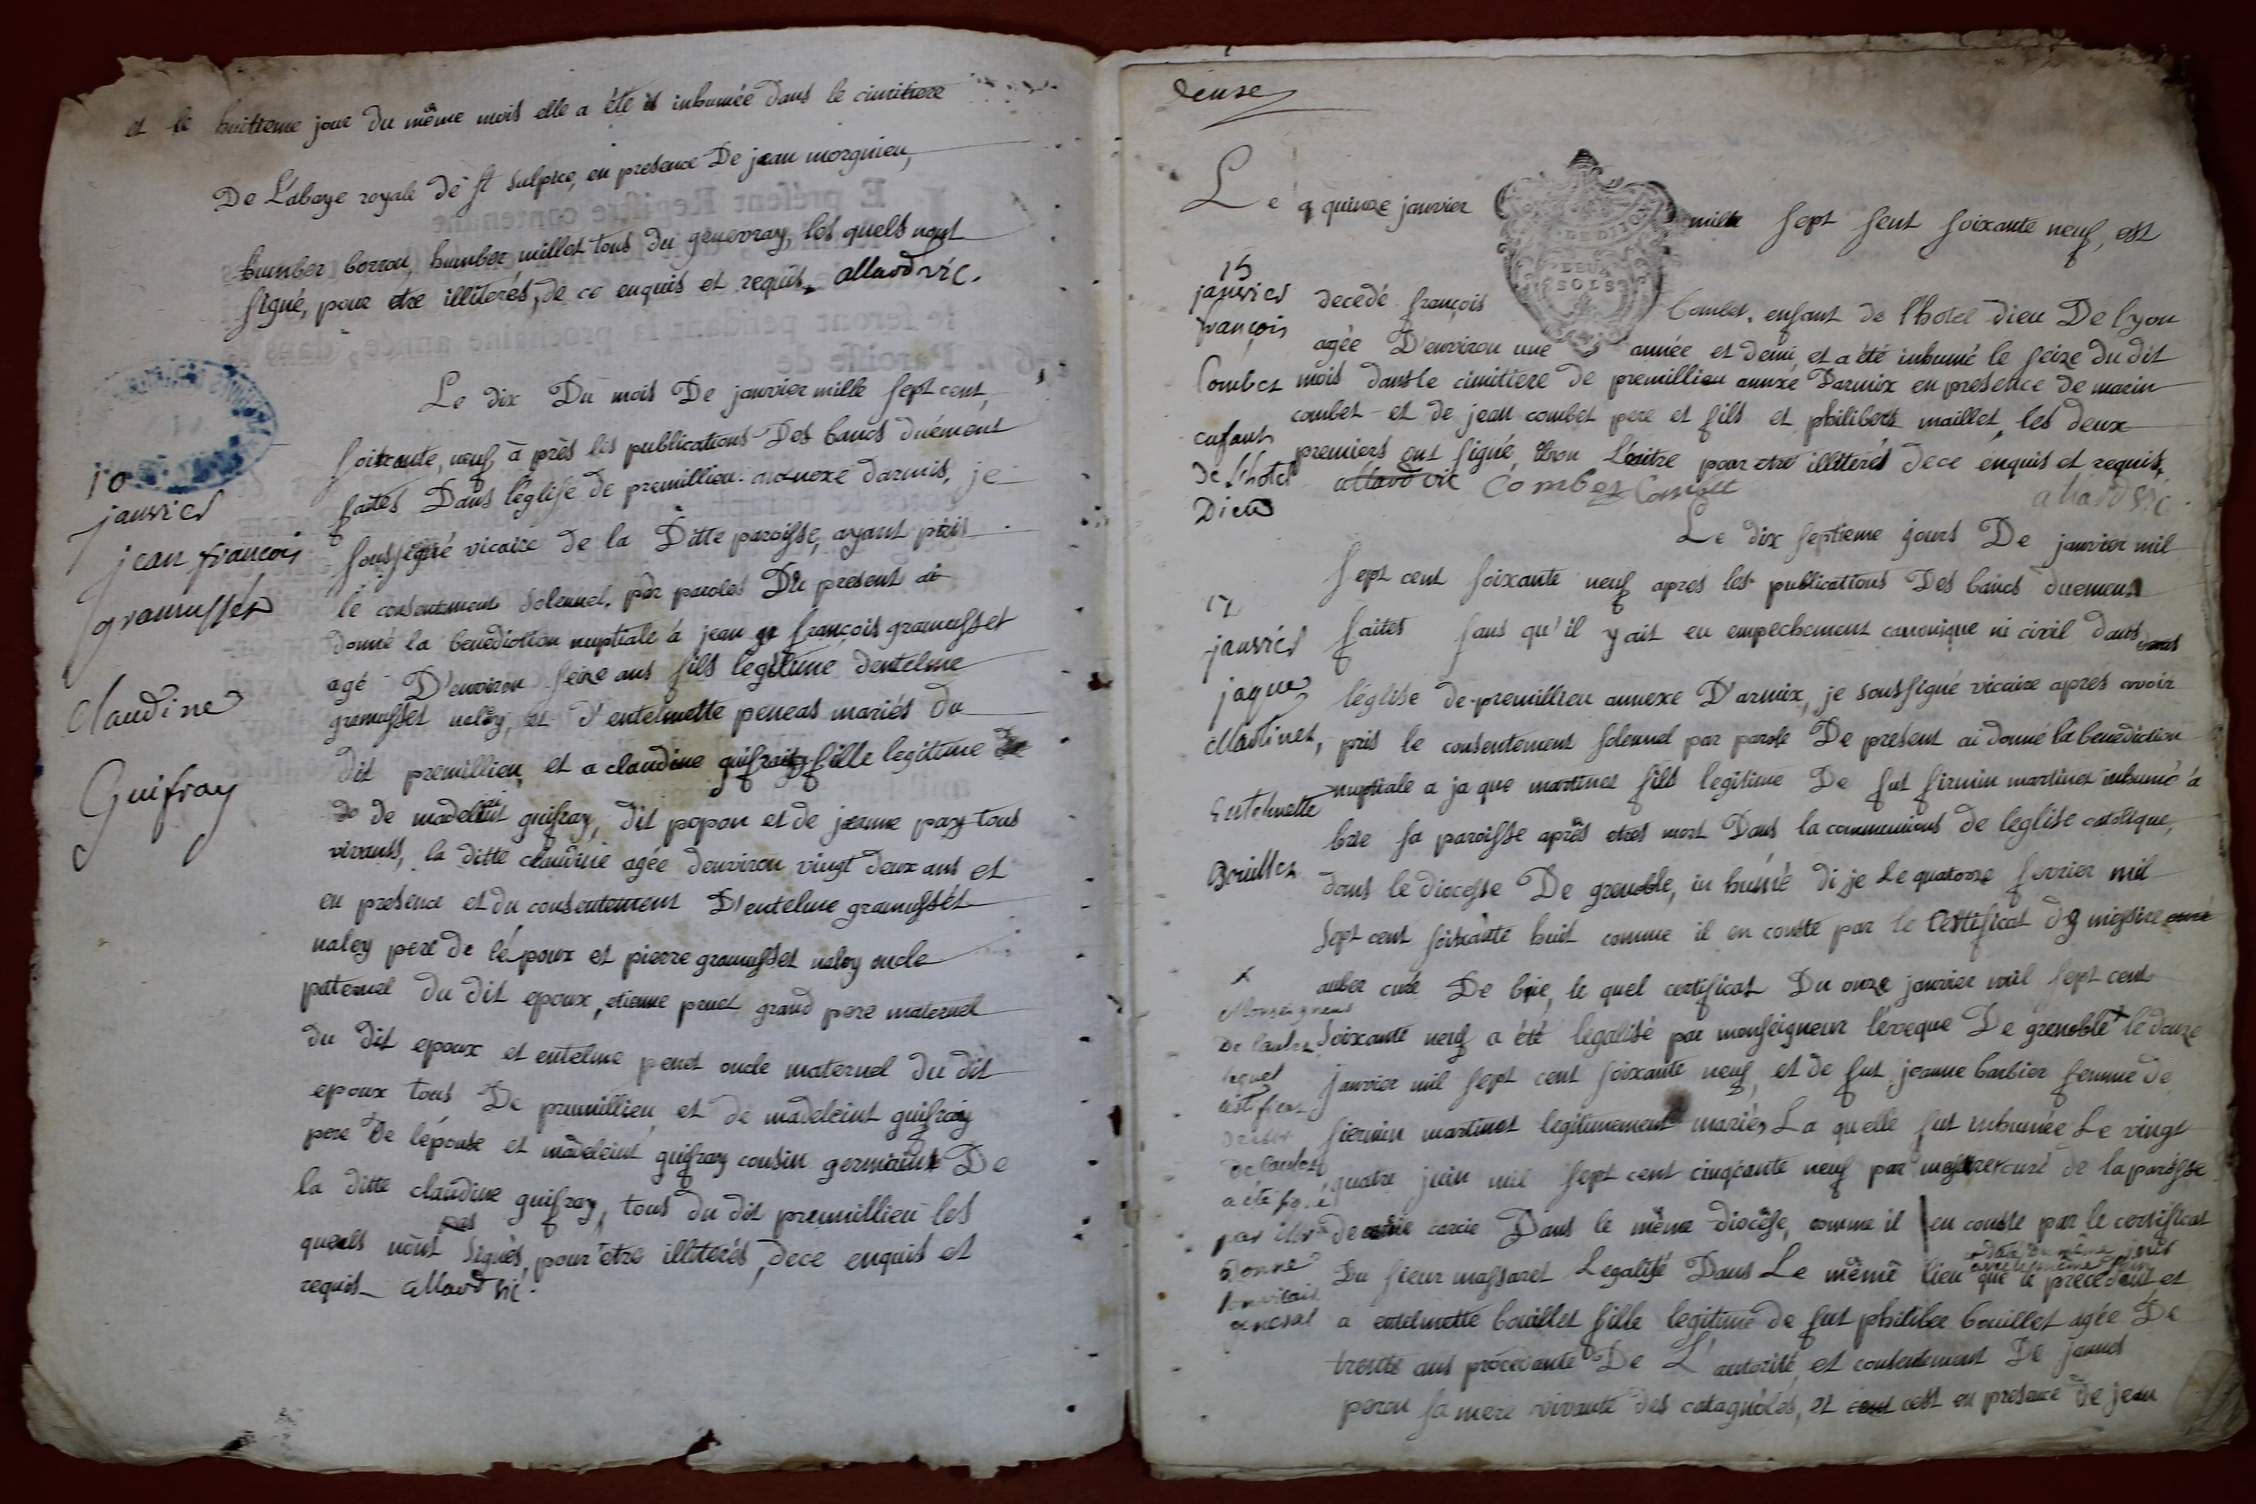 et le huitieme jour du même mois elle a été inhumée dans le cimitiere
De L'abaye royale de st sulpice, en presence De jean morgnieu,
humber borrou, humber millet tous du genevray, les quels nont
signé, pour etre illiterés, de ce enquis et requis. allard vic.
Le dix Du mois De janvier mille sept cent,
soixante, neuf, à près les publications Des bancs duément
faites Dans l'église de premillieu annexe darmis, je
soussigné vicaire de la Ditte paroisse, ayant pris
le consentement solennel, par paroles Du present ai
donné la benediction nuptiale à jean françois gramusset
agé D'environ seize ans fils legitime dentelme
gramusset naley, et d'entelmette peneas mariés du
dit premillieu, et a claudine guifray fille legitime
de madeleint guifray, dit popon et de jeanne pary tous
vivants, la ditte claudine agée denviron vingt deux ans et
en presence et du consentement D'entelme gramusset
naley pere de lépoux et pierre gramusset naley oncle
paternel du dit epoux, etienne penet grand pere maternel
du dit epoux et entelme penet oncle maternel du dit
epoux tous De premillieu et de madeleint guifray
pere De lépouse et madeleint guifray cousin germains De
la ditte claudine guifray, tous du dit premillieu les
quels nont pas signés, pour etre illiterés, dece enquis et
requis allard vic.
10
janvier
jean françois
gramusset
Claudine
Guifray
deuxe
Le quinze janvier mille sept sent soixante neuf, est
DE DIJON
DEUX
SOLS
decedé françois Combet, enfant de l'hotel dieu De lyon
agée D'environ une année et demi, et a été inhumé le seize du dit
mois dans le cimitiere de premillieu annxe Darmix en presence de marin
combet et de jean combet pere et fils et philibert maillet, les deux
premiers ont signé, non L'autre pour etre illiterés dece enquis et requis,
allard vic Combet Combet
allard vic.
15
janvier
françois
Combet
enfant
de l'hotel
Dieu
Le dix septieme jours De janvier mil
sept cent soixante neuf apres les publications Des bancs duement
faites sans qu'il y ait eu empechement canonique ni civil dans
léglise de premillieu annexe D'armix, je soussigné vicaire aprés avoir
pris le consentement solennel par parole De present ai donné la benediction
nuptiale a jaque martinet fils legitime De fut firmin martinet inhumé à
brie sa paroisse aprés etres mort Dans la communions de leglise catolique,
dans le diocesse De grenoble, in humé di je Le quatorze fevrier mil
sept cent soixante huit comme il en conste par le certificat de messire
auber curé De brie, le quel certificat Du onze janvier mil sept cent
soixante neuf a été legalisé par monseigneur léveque De grenoble le douze
janvier mil sept cent soixante neuf, et de fut jeanne barbier femme de
fiermin martinet legitimement mariés, La quelle fut inhumée Le vingt
quatre juin mil sept cent cinqeante neuf par messire curé de la paroisse
de carcie Dans le même diocése, comme il en conste par le certificat
Du sieur massaret Legalisé Dans Le même lieu que le precedent et
a entelmette bouillet fille legitime de fut philiber bouillet agée De
trente ans procedante De L'autorité, et consentement De jeanne
perou sa mere vivante des catagnoles, et cest en presence de jean
17
janvier
jaque
Martinet,
Entelmette
Bouillet
x
Monseigneur
De
lequel
certificat
a été signé
par
general